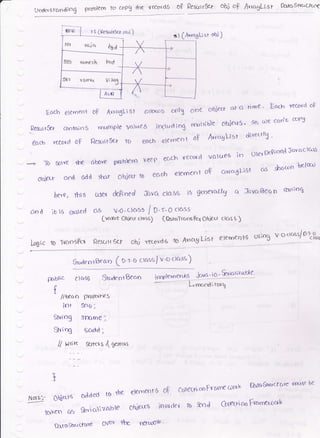 Understanding problem to copy the records of ResultSet obj of ArrayList DataStructure
BFR
rs (ResultSet obj)
al (ArrayList obj)
101 raja hyd
ALR
Each element of ArrayList allows only one object at a time. Each record of
ResultSet contains multiple values including multiple objects. So, we can't copy
each record of ResultSet to each element of ArrayList directly.
→ To solve the above problem keep each record values in UserDefined Java class
object and add that object to each element of ArrayList as shown below
here, this user defined Java class is generally a JavaBean
and it is called as V.O. class / D.T.O class
(value Object class) (DataTransfer Object class)
Logic to Transfer ResultSet obj records to ArrayList elements using V.O class/D.T.O class
StudentBean (D.T.O class/V.O class)
public class StudentBean implements java.io.Serializable
{
mandatory
//bean properties
int sno;
String sname;
String sadd;
// write setters & getters
}
Note: Objects added to the elements of CollectionFramework DataStructure must be
taken as Serializable objects inorder to send CollectionFramework
DataStructure over the network.